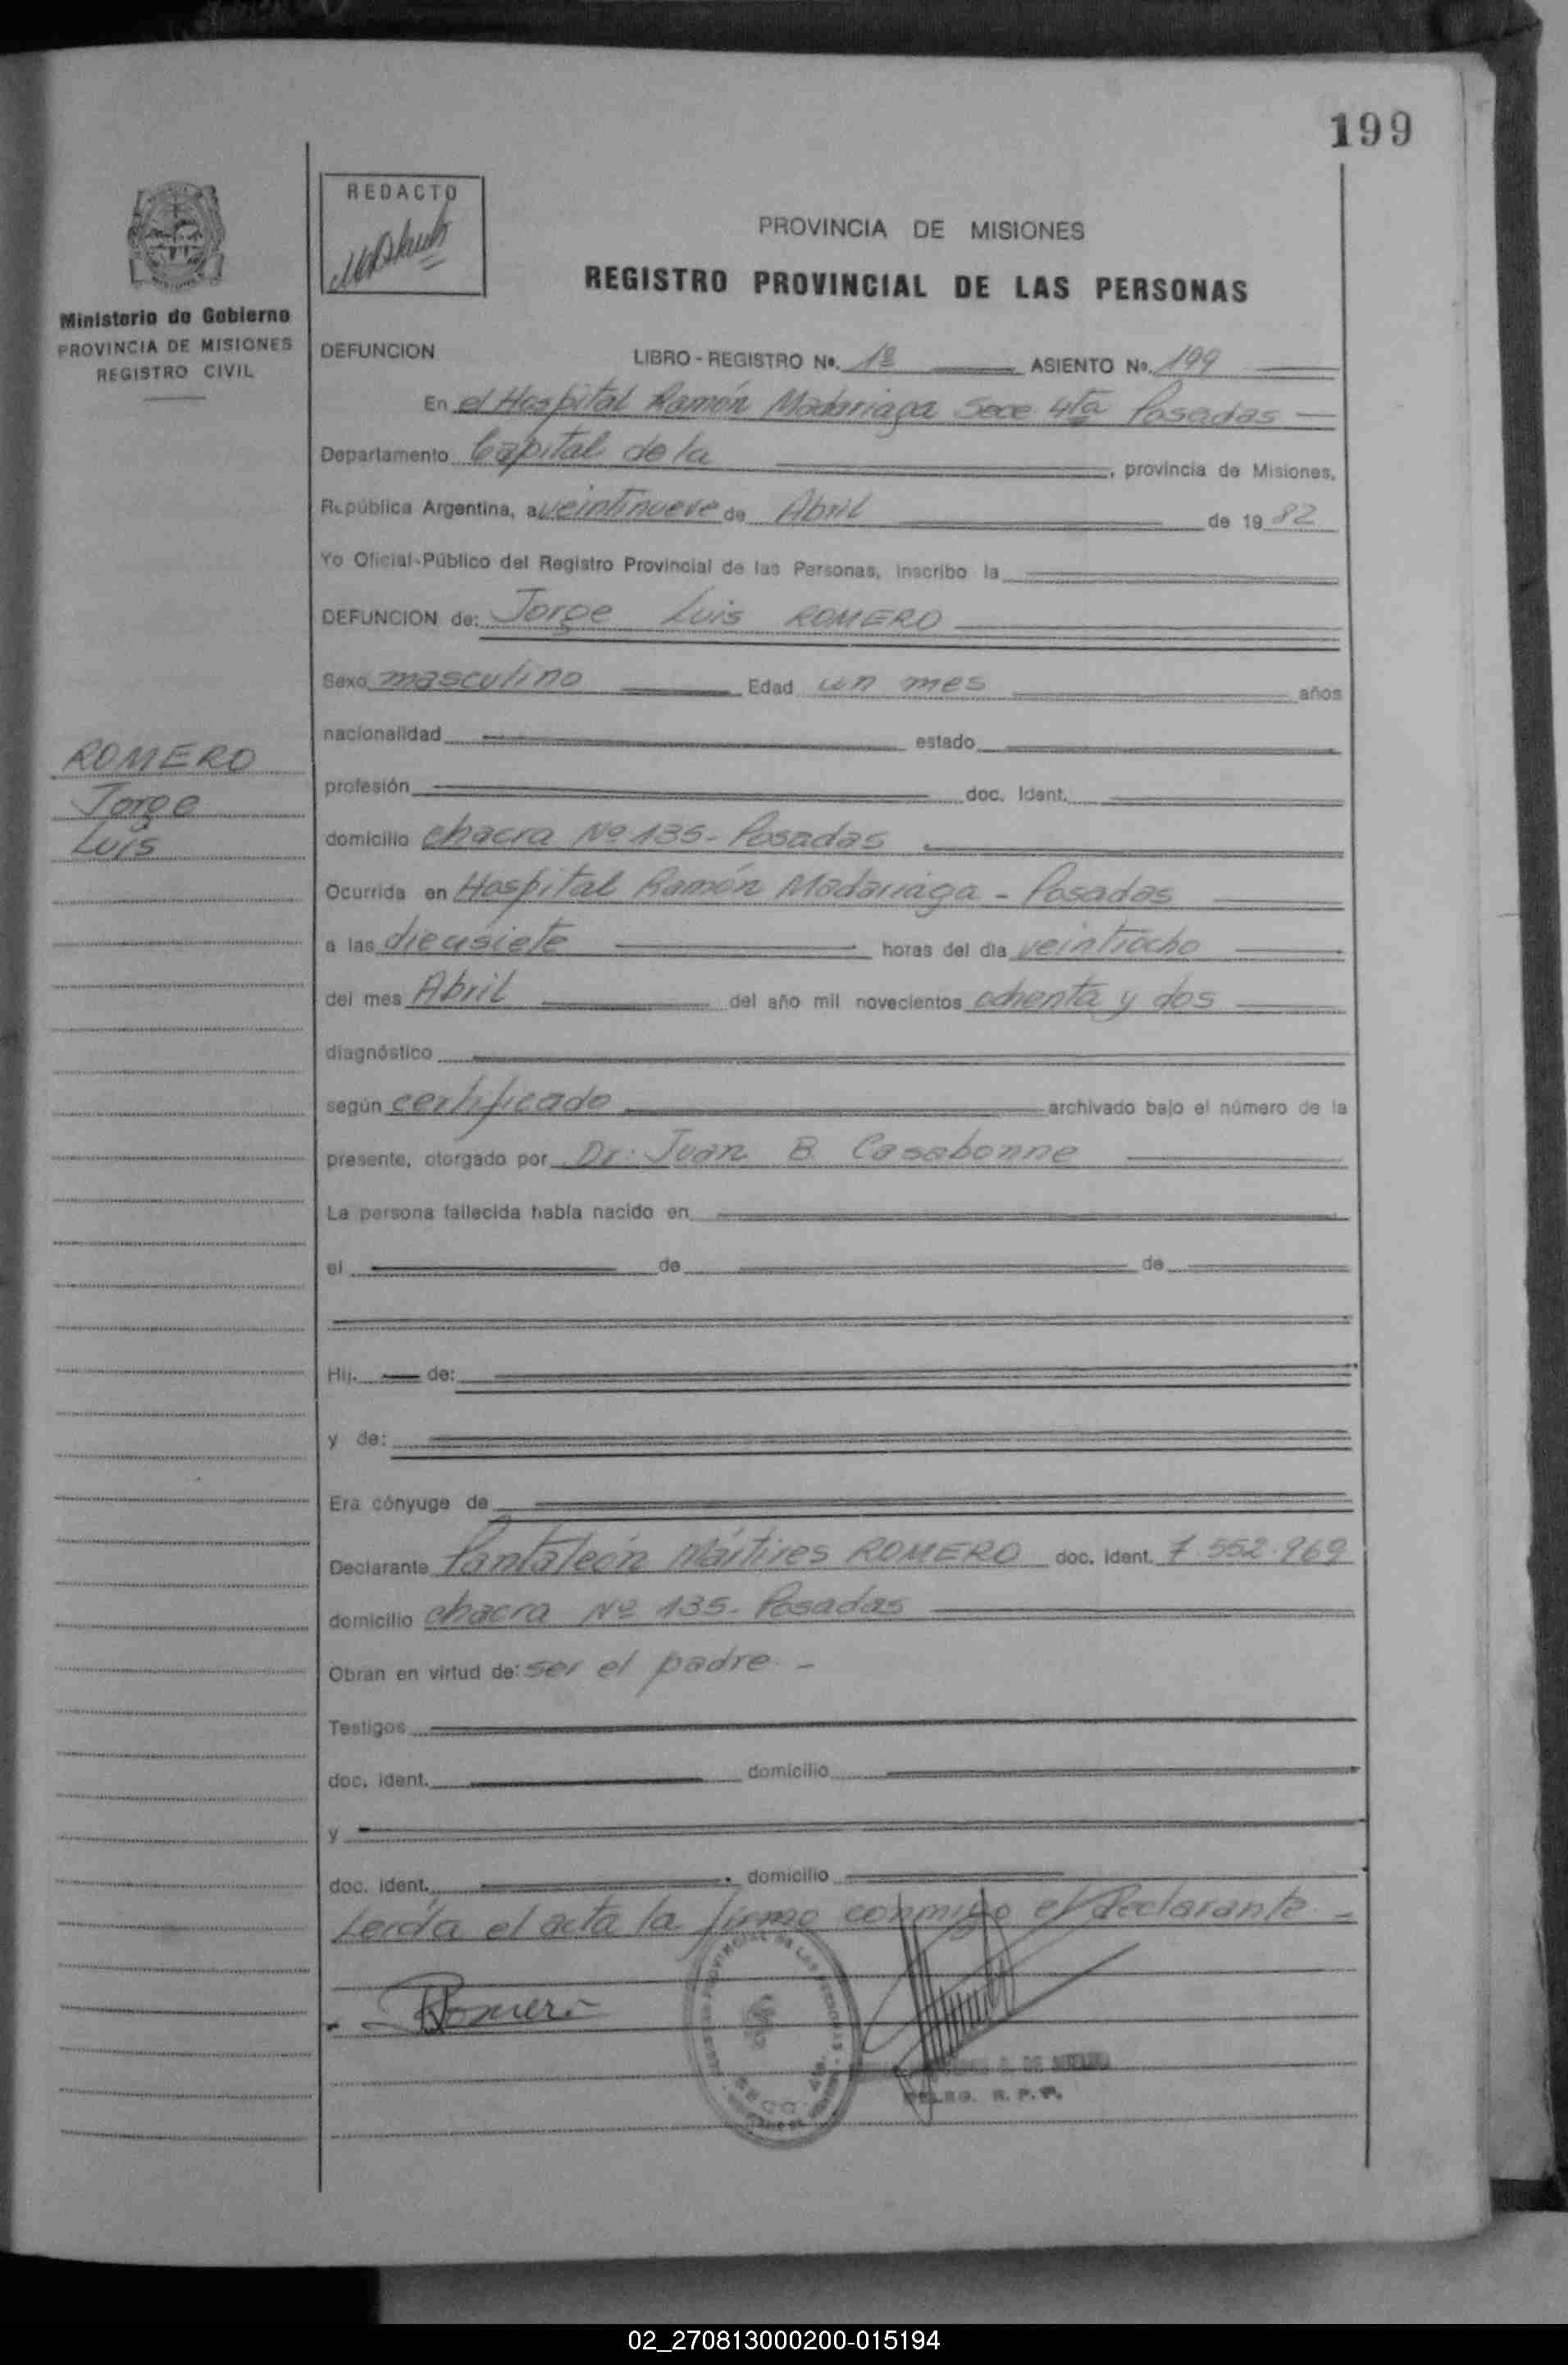 199
REDACTO
PROVINCIA DE MISIONES
REGISTRO PROVINCIAL DE LAS PERSONAS
Ministerio de Gobierno
PROVINCIA DE MISIONES
REGISTRO CIVIL
DEFUNCION LIBRO - REGISTRO Nº. 1º ASIENTO Nº. 199
En el Hospital Ramón Madariaga Secc 4ta Posadas
Departamento Capital de la , provincia de Misiones,
República Argentina, a veintinueve de Abril de 1982
Yo Oficial-Público del Registro Provincial de las Personas, inscribo la
DEFUNCION de: Jorge Luis ROMERO
Sexo masculino Edad un mes años
nacionalidad estado
profesión doc. ident.
ROMERO
Jorge
Luis
domicilio chacra Nº 135 - Posadas
Ocurrida en Hospital Ramón Madariaga - Posadas
a las diecisiete horas del día veintiocho
del mes Abril del año mil novecientos ochenta y dos
diagnóstico
según certificado archivado bajo el número de la
presente, otorgado por Dr. Juan B Casabonne
La persona fallecida había nacido en
el de de
Hij. de:
y de:
Era cónyuge de
Declarante Pantaleón Mártires ROMERO doc. ident. 7.552.969
domicilio chacra Nº 135 - Posadas
Obran en virtud de: ser el padre. -
Testigos
doc. ident. domicilio
y
doc. ident. domicilio
Leída el acta la firma conmigo el declarante -
Romero
DELEG. R. P. P.
02_270813000200-015194